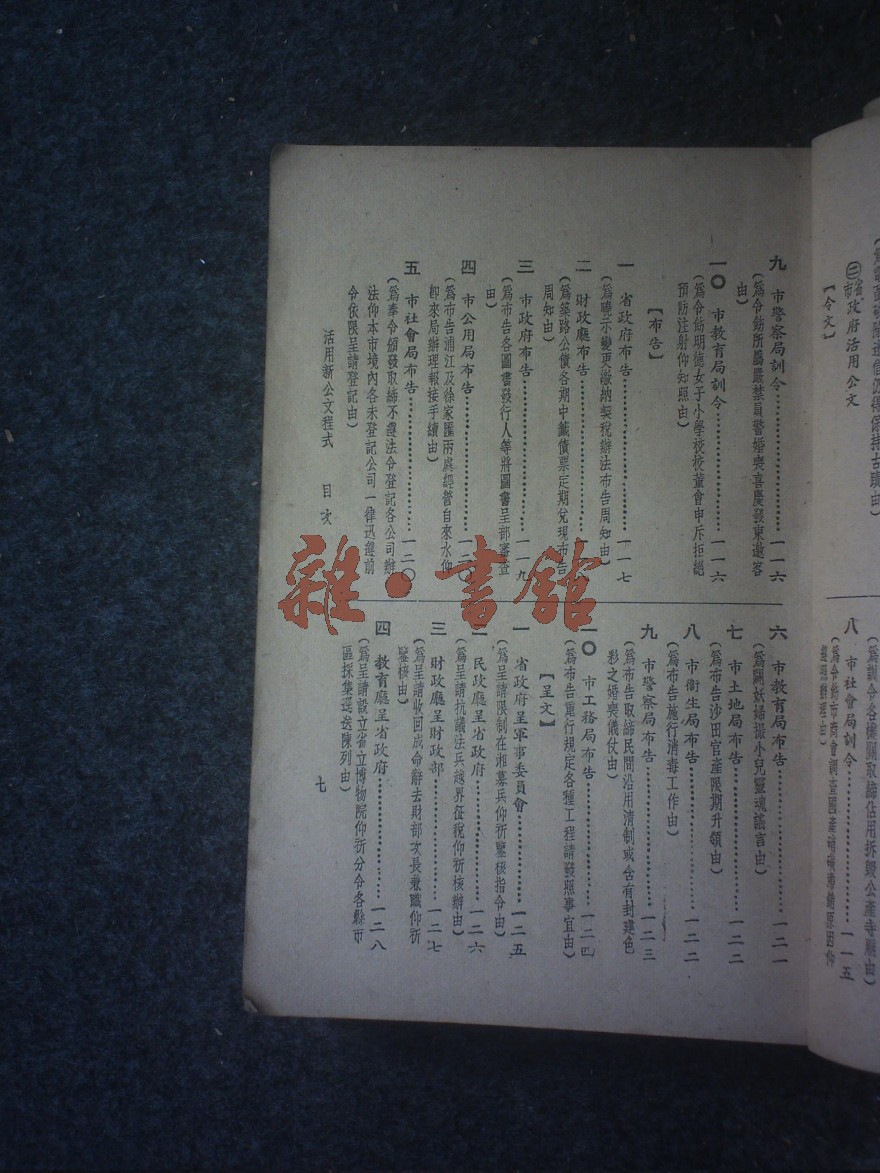 ㊁省市政府活用公文
【令文】
八　市社會局訓令………一一五
九　市警察局訓令………一一六
（爲令飭所屬嚴禁員警婚喪喜慶發柬邀客
由）
一〇　市教育局訓令………一一六
（爲令飭明德女子小學校校董會申斥拒絕
預防注射仰知照由）
【布告】
一　省政府布告………一一七
（爲曉示變更繳納契稅辦法布告周知由）
二　財政廳布告
（爲築路公債各期中籤債票定期兌現布告
周知由）
三　市政府布告………一一九
（爲布告各圖書發行人等將圖書呈部審查
由）
四　市公用局布告
（爲布告浦江及徐家匯兩處經營自來水仰
卽來局辦理報接手續由）
五　市社會局布告………一二〇
（爲奉令頒發取締不遵法令登記各公司辦
法仰本市境內各未登記公司一律迅遵前
令依限呈請登記由）
六　市教育局布告………一二一
（爲闢妖婦攝小兒靈魂謠言由）
七　市土地局布告………一二二
（爲布告沙田官產限期升領由）
八　市衞生局布告………一二二
（爲布告施行消毒工作由）
九　市警察局布告………一二三
（爲布告取締民間沿用清制或含有封建色
彩之婚喪儀仗由）
一〇　市工務局布告………一二四
（爲布告重行規定各種工程請發照事宜由）
【呈文】
一　省政府呈軍事委員會………一二五
（爲呈請限制在湘募兵仰祈鑒核指令由）
二　民政廳呈省政府………一二六
（爲呈請抗議法兵越界征稅仰祈核辦由）
三　財政廳呈財政部………一二七
（爲呈請收回成命辭去財部次長兼職仰祈
鑒核由）
四　教育廳呈省政府………一二八
（爲呈請設立省立博物院仰祈分令各縣市
區採集運送陳列由）
活用新公文程式　目次
七
雜·書館